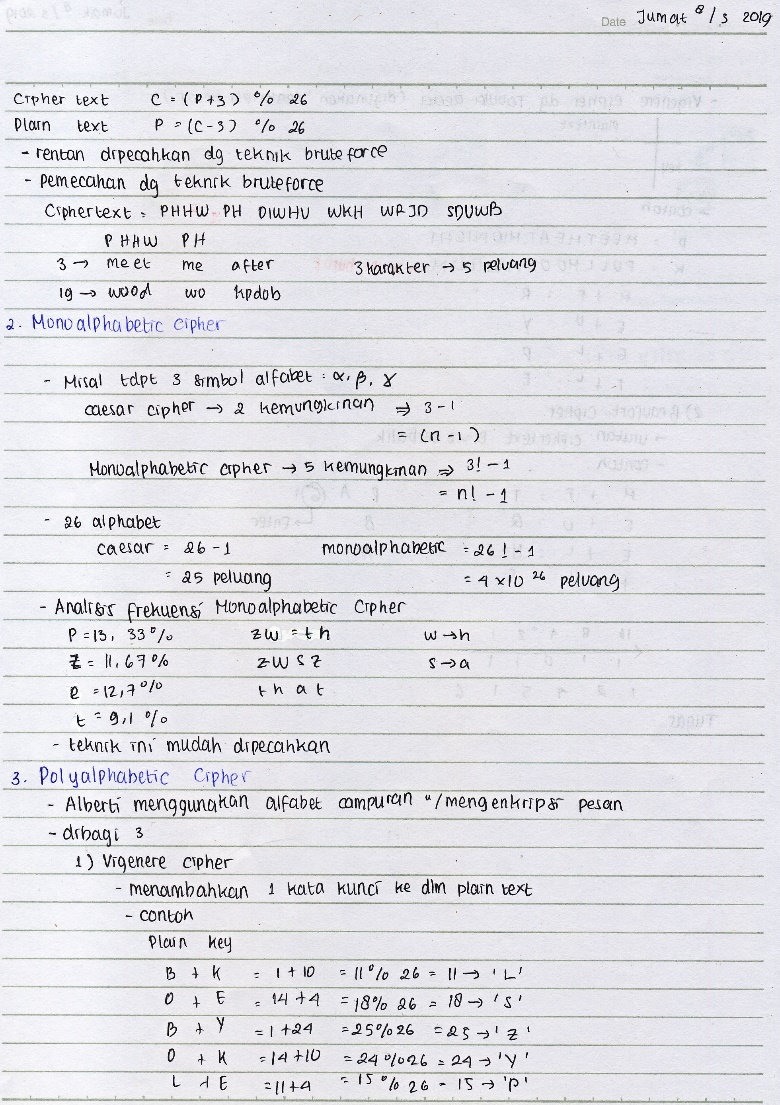 Date Jumat 8/3 2019
Cipher text C = (P+3) % 26
Plain text P = (C-3) % 26
- rentan dipecahkan dg teknik bruteforce
- Pemecahan dg teknik bruteforce
Ciphertext : PHHW PH DIWHU WKH WRJD SDUWB
PHHW PH
3 → meet me after 3 karakter → 5 peluang
19 → wood wo kpdob
2. Monoalphabetic Cipher
- Misal tdpt 3 simbol alfabet : α, β, γ
caesar cipher → 2 kemungkinan ⇒ 3-1
= (n-1)
Monoalphabetic cipher → 5 kemungkinan ⇒ 3!-1
= n! -1
- 26 alphabet
caesar = 26-1 monoalphabetic = 26!-1
= 25 peluang = 4x10^26 peluang
- Analisis frekuensi Monoalphabetic Cipher
P = 13, 33% ZW = th W → h
Z = 11,67% ZWSZ S → a
e = 12,7% that
t = 9,1 %
- teknik ini mudah dipecahkan
3. Polyalphabetic Cipher
- Alberti menggunakan alfabet campuran u/mengenkripsi pesan
- dibagi 3
1) Vigenere cipher
- menambahkan 1 kata kunci ke dlm plain text
- contoh
Plain key
B + K = 1+10 = 11% 26 = 11 → 'L'
O + E = 14+4 = 18% 26 = 18 → 'S'
B + Y = 1+24 = 25%26 = 25 → 'Z'
O + K = 14+10 = 24%26 = 24 → 'Y'
L + E = 11+4 = 15% 26 = 15 → 'P'